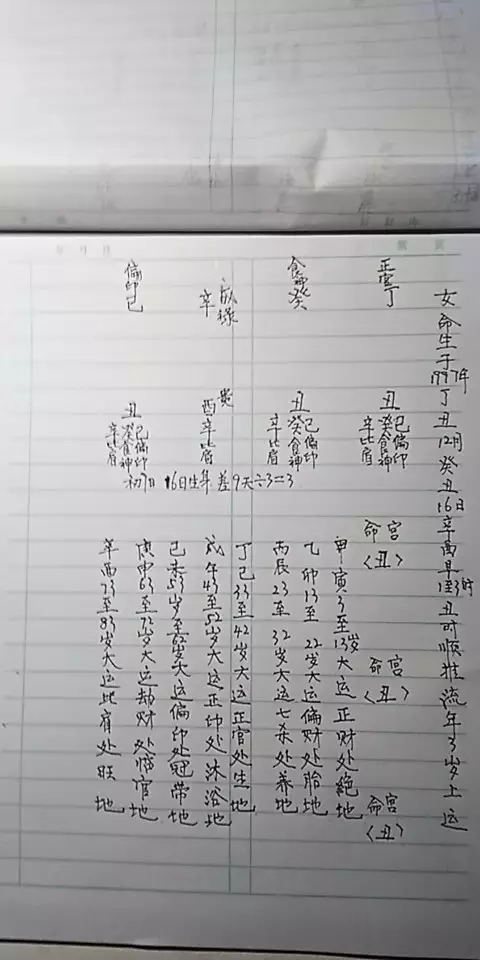 女命生于1997年丁丑12月癸丑16日辛酉早1至3时丑时顺推流年3岁上运
正官丁
食神癸
辛
偏印己
丑
己偏印
癸食神
辛比肩
丑
己偏印
癸食神
辛比肩
酉辛比肩
丑
己偏印
癸食神
辛比肩
初7日 16日生年差9天÷3=3
命宫
〈丑〉
命宫
〈丑〉
命宫
〈丑〉
甲寅3至13岁大运正财处绝地
乙卯13至22岁大运偏财处胎地
丙辰23至32岁大运七杀处养地
丁巳33至42岁大运正官处生地
戊午43至52岁大运正印处沐浴地
己未53岁至62岁大运偏印处冠带地
庚申63至72岁大运劫财处临官地
辛酉73至83岁大运比肩处旺地